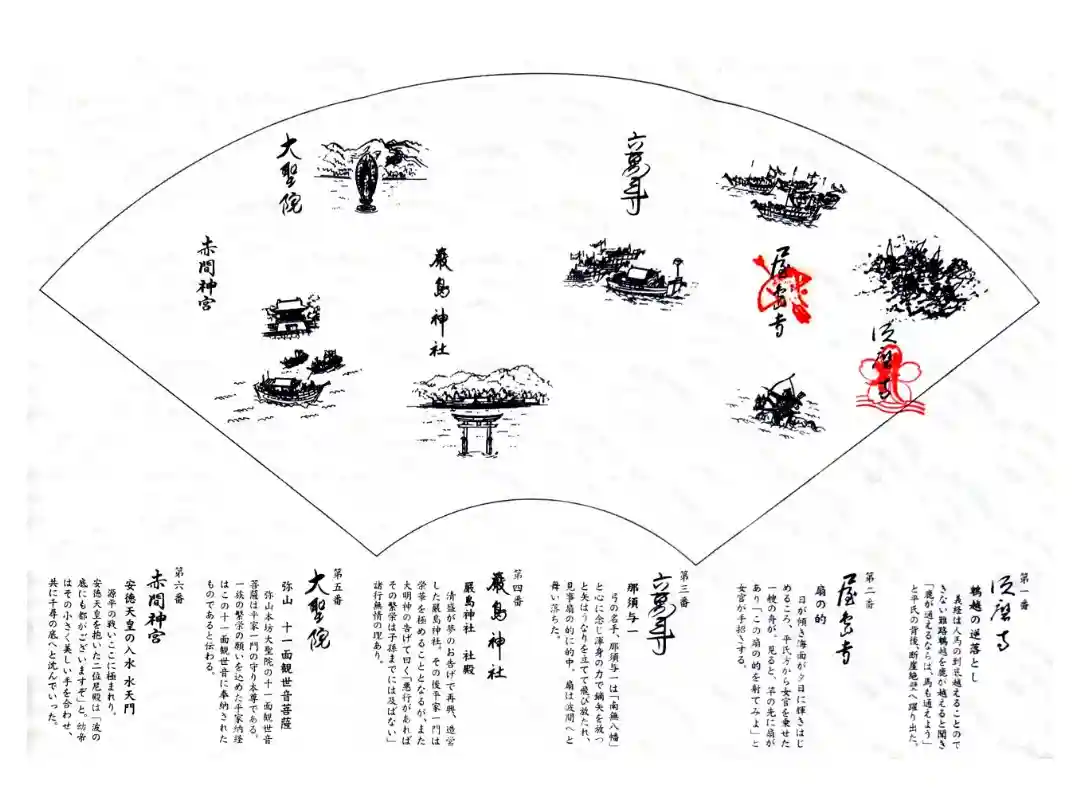 六萬寺
屋島寺
須磨寺
大聖院
嚴島神社
赤間神宮
第一番
須磨寺
鵯越の逆落とし
義経は人馬の到底越えることので
きない難路鵯越を鹿が越えると聞き
「鹿が通えるならば、馬も通えよう」
と平氏の背後、断崖絶壁へ躍り出た。
第二番
屋島寺
扇の的
日が傾き海面が夕日に輝きはじ
めるころ、平氏方から女官を乗せた
一艘の舟が。見ると、竿の先に扇が
あり「この扇の的を射てみよ」と
女官が手招きする。
第三番
六萬寺
那須与一
弓の名手、那須与一は「南無八幡」
と心に念じ渾身の力で鏑矢を放つ
と矢はうなりを立てて飛び放たれ、
見事扇の的に的中。扇は波間へと
舞い落ちた。
第四番
嚴島神社
厳島神社 社殿
清盛が夢のお告げで再興、造営
した厳島神社。その後平家一門は
栄華を極めることとなるが、また
大明神の告げて曰く「悪行があれば
その繁栄は子孫までには及ばない」
諸行無情の理あり。
第五番
大聖院
弥山 十一面観世音菩薩
弥山本坊大聖院の十一面観世音
菩薩は平家一門の守り本尊である。
一族の繁栄の願いを込めた平家納経
はこの十一面観世音に奉納された
ものであると伝わる。
第六番
赤間神宮
安徳天皇の入水 水天門
源平の戦いここに極まれり。
安徳天皇を抱いた二位尼殿は「波の
底にも都がございますぞ」と。幼帝
はその小さく美しい手を合わせ、
共に千尋の底へと沈んでいった。